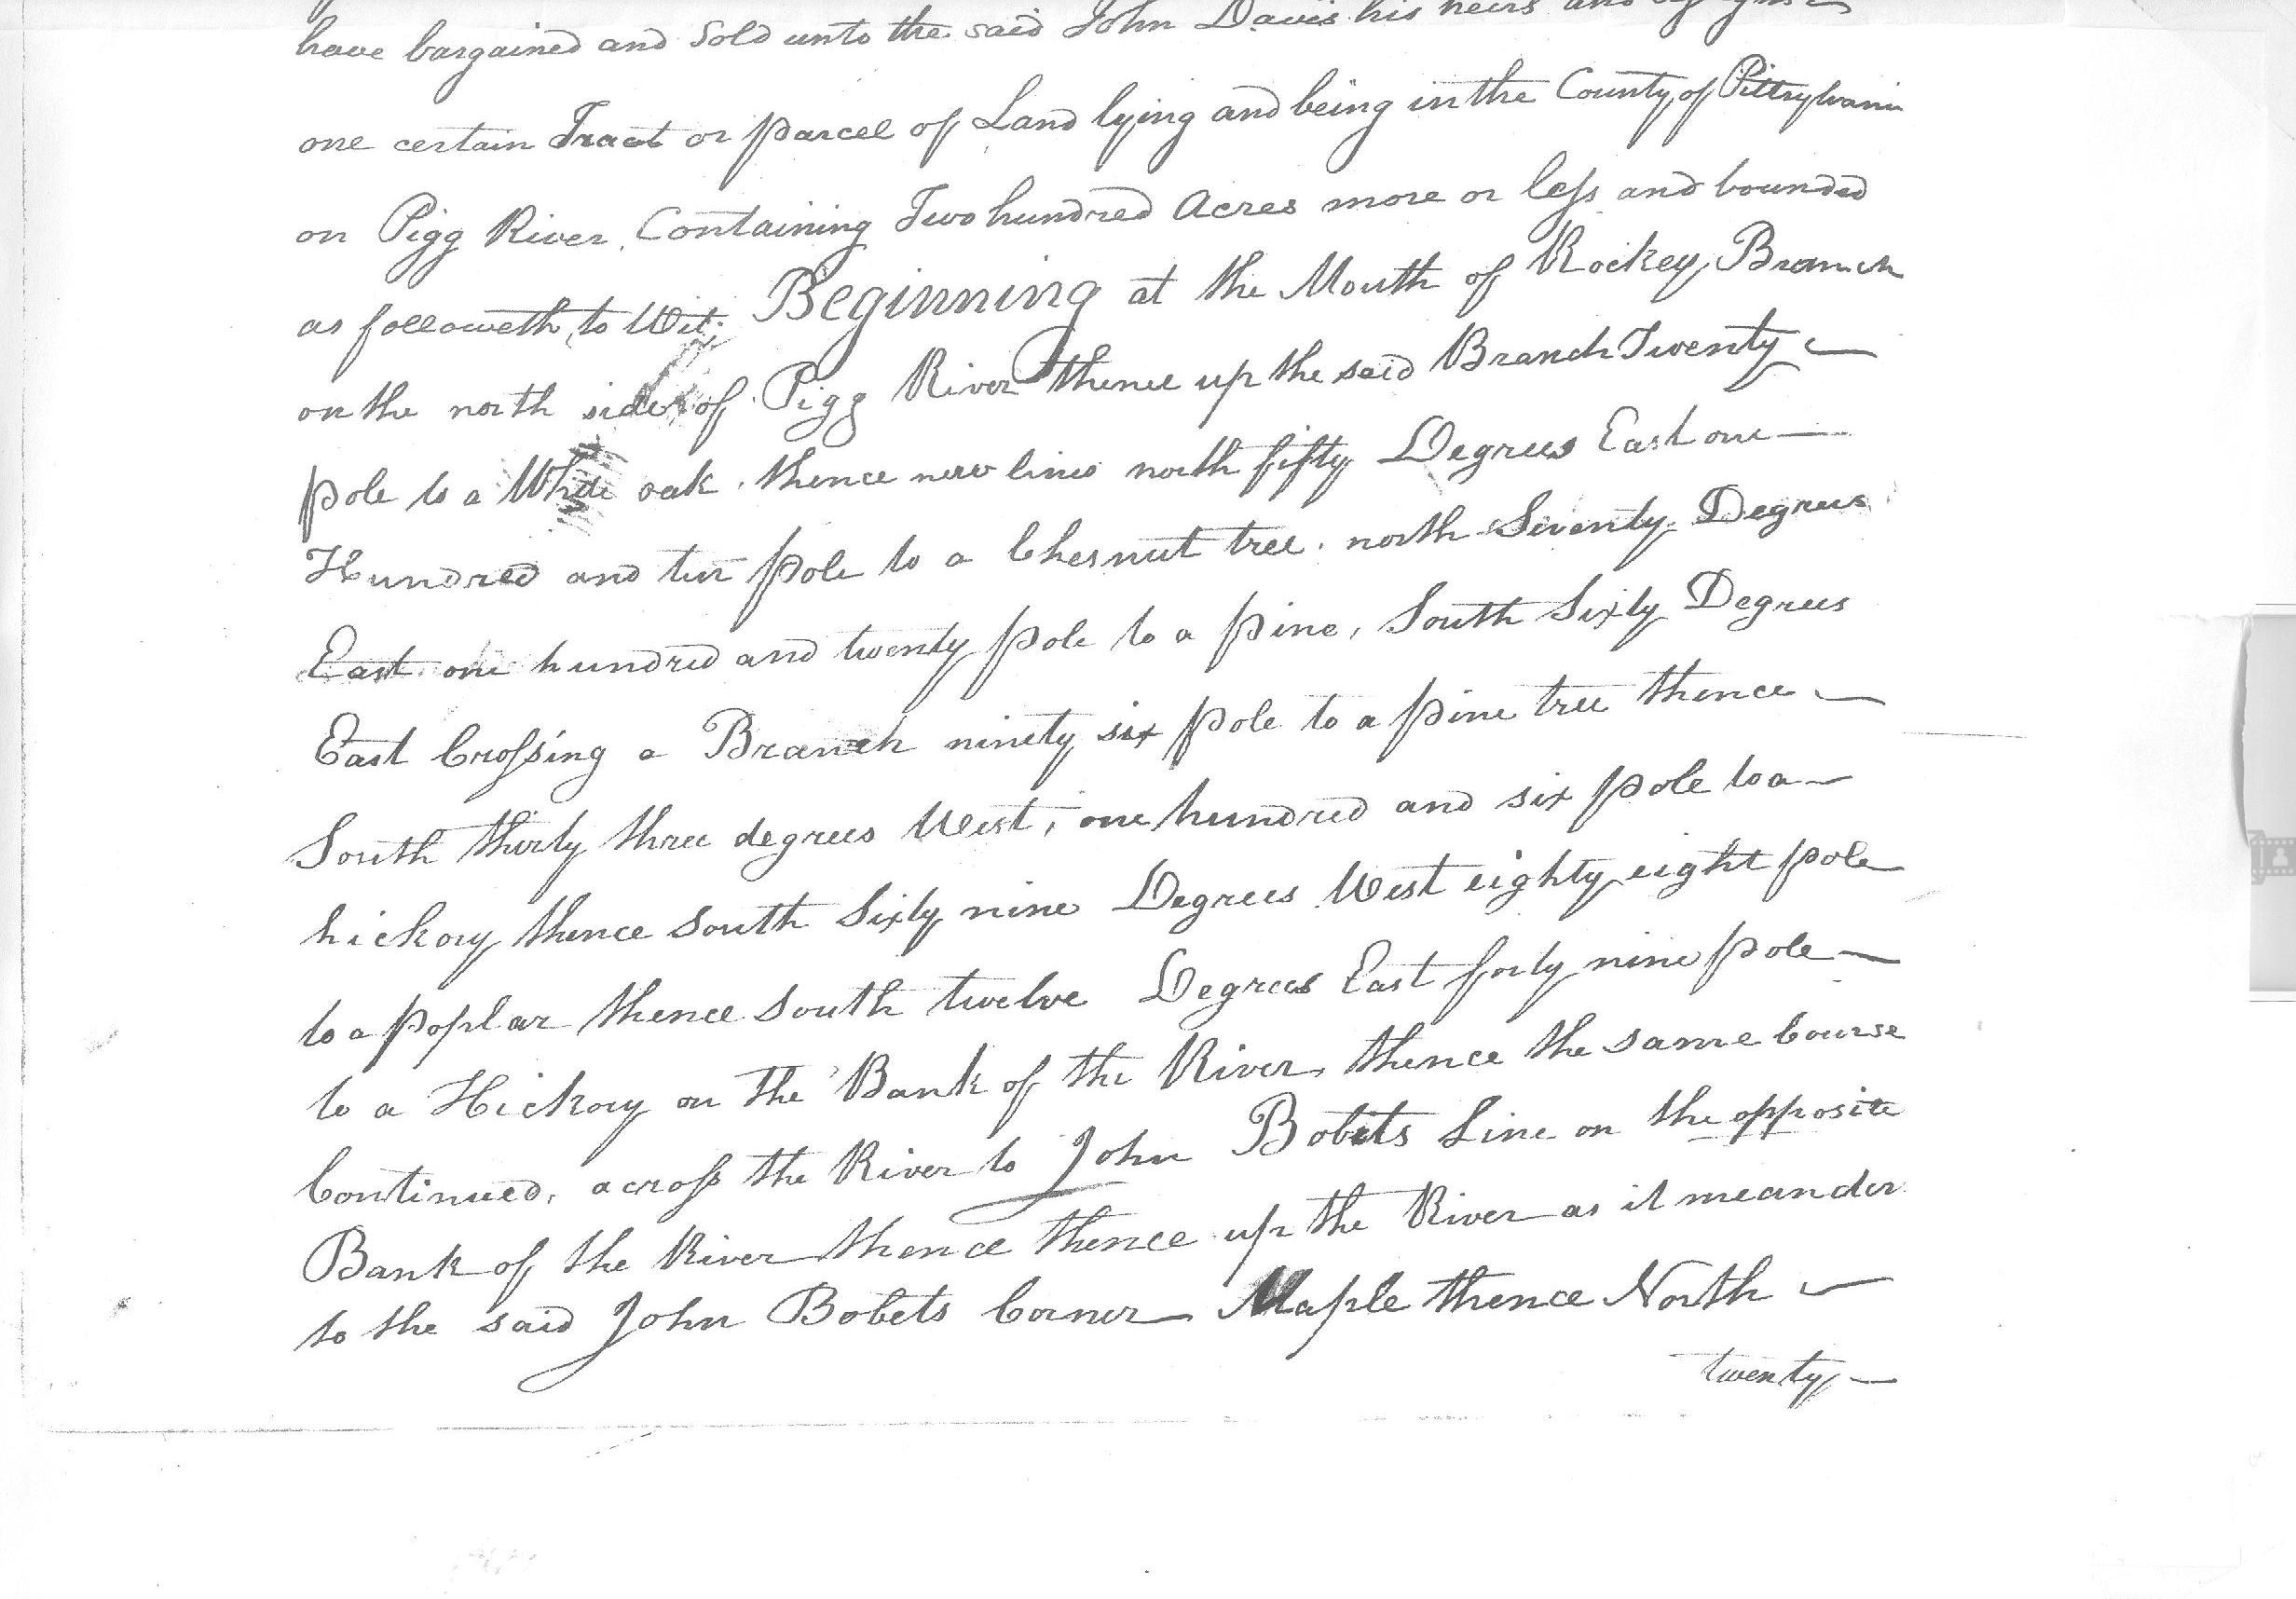 have bargained and Sold unto the said John Davis his heirs and assigns
one certain Tract or parcel of Land lying and being in the County of Pittsylvania
on Pigg River Containing Two hundred Acres more or less and bounded
as followeth, to Wit; Beginning at the Mouth of Rockey Branch
on the north side of Pigg River thence up the said Branch Twenty —
pole to a White oak. thence new lines north fifty Degrees East one —
Hundred and ten pole to a Chesnut tree. north Seventy Degrees
East one hundred and twenty pole to a pine, South Sixty Degrees
East Crossing a Branch ninety six pole to a pine tree thence —
South thirty three degrees West, one hundred and six pole to a —
hickory thence South Sixty nine Degrees West eighty eight pole
to a poplar thence South twelve Degrees East forty nine pole —
to a Hickory on the Bank of the River thence the same Course
Continued, across the River to John Bobits Line on the opposite
Bank of the River thence thence up the River as it meander
to the said John Bobets Corner Maple thence North —
twenty —